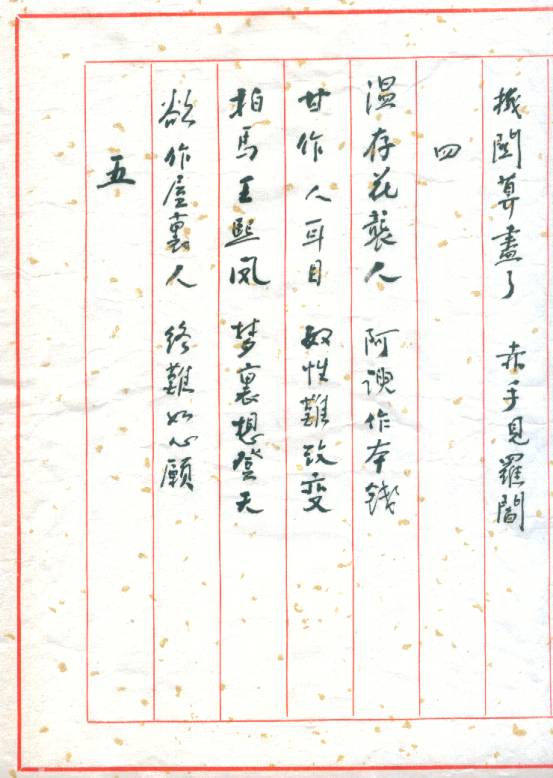 機関算盡了 赤手見羅閻
四
温存花襲人 阿諛作本錢
甘作人耳目 奴性難致变
拍馬王熙凤 梦裏想登天
欲作屋裏人 終難如心願
五